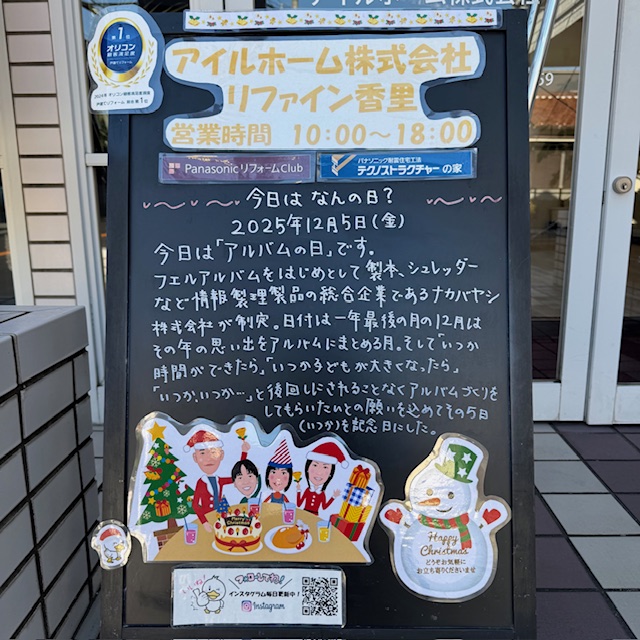 第1位
オリコン
顧客満足度
アイルホーム株式会社
リファイン香里
営業時間 10:00〜18:00
Panasonic リフォームClub
パナソニック耐震住宅工法
テクノストラクチャーの家
今日は なんの日?
2025年12月5日(金)
今日は「アルバムの日」です。
フエルアルバムをはじめとして製本、シュレッダー
など情報製理製品の総合企業であるナカバヤシ
株式会社が制定。日付は一年最後の月の12月は
その年の思い出をアルバムにまとめる月。そして「いつか
時間ができたら」「いつか子どもが大きくなったら」
「いつか、いつか…」と後回しにされることなくアルバムづくりを
してもらいたいとの願いを込めてその5日
(いつか)を記念日にした。
Merry
Christmas
Happy
Christmas
どうぞお気軽に
お立ち寄りくださいませ
フォローしてね!
インスタグラム毎日更新中!
Instagram